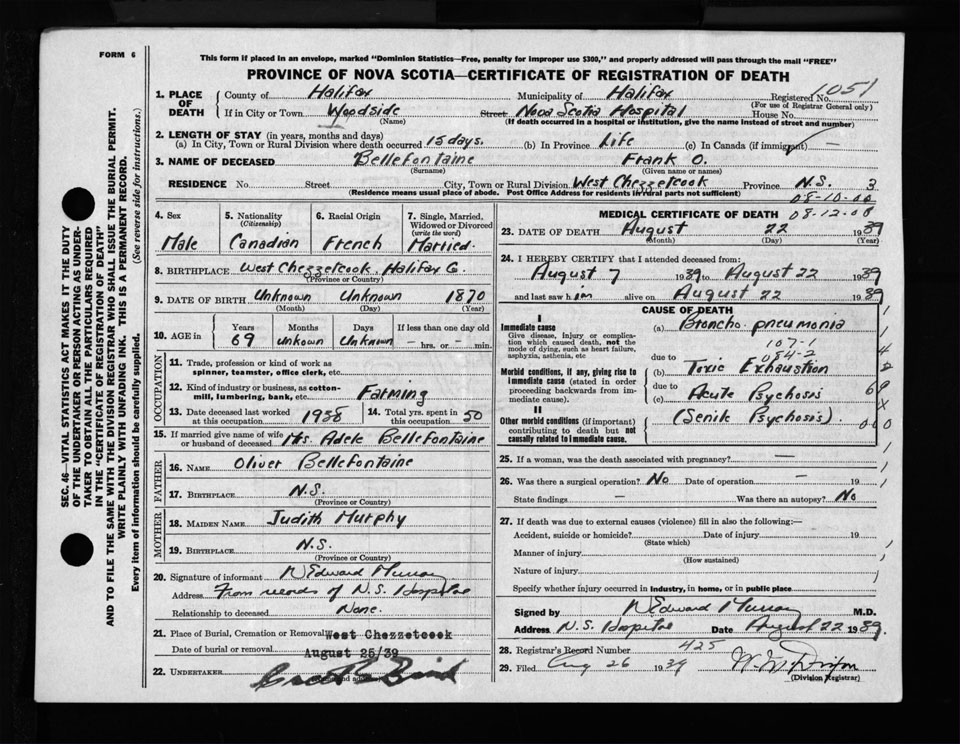 FORM 6
This form if placed in an envelope, marked "Dominion Statistics—Free, penalty for improper use $300," and properly addressed will pass through the mail "FREE"
PROVINCE OF NOVA SCOTIA—CERTIFICATE OF REGISTRATION OF DEATH
SEC. 46—VITAL STATISTICS ACT MAKES IT THE DUTY
OF THE UNDERTAKER OR PERSON ACTING AS UNDER-
TAKER TO OBTAIN ALL THE PARTICULARS REQUIRED
IN THE "CERTIFICATE OF REGISTRATION OF DEATH"
AND TO FILE THE SAME WITH THE DIVISION REGISTRAR WHO SHALL ISSUE THE BURIAL PERMIT.
WRITE PLAINLY WITH UNFADING INK. THIS IS A PERMANENT RECORD.
Every item of information should be carefully supplied. (See reverse side for instructions.)
1. PLACE OF DEATH
County of Halifax Municipality of Halifax Registered No. 1051
(For use of Registrar General only)
If in City or Town Woodside Street Nova Scotia Hospital House No.
(Name) (If death occurred in a hospital or institution, give the name instead of street and number)
2. LENGTH OF STAY (in years, months and days)
(a) In City, Town or Rural Division where death occurred 15 days. (b) In Province Life (c) In Canada (if immigrant) —
3. NAME OF DECEASED Bellefontaine Frank O.
(Surname) (Given name or names)
RESIDENCE No. Street City, Town or Rural Division West Chezzetcook Province N.S. 3
(Residence means usual place of abode. Post Office Address for residents in rural parts not sufficient)
08-10-00
08-12-00
4. Sex Male
5. Nationality (Citizenship) Canadian
6. Racial Origin French
7. Single, Married, Widowed or Divorced (write the word) Married
8. BIRTHPLACE West Chezzetcook, Halifax Co.
(Province or Country)
9. DATE OF BIRTH Unknown Unknown 1870
(Month) (Day) (Year)
10. AGE in Years 69 Months unkown Days Unknown If less than one day old — hrs. or — min.
OCCUPATION
11. Trade, profession or kind of work as
spinner, teamster, office clerk, etc.
12. Kind of industry or business, as cotton-
mill, lumbering, bank, etc. Farming
13. Date deceased last worked at this occupation 1938
14. Total yrs. spent in this occupation 50
15. If married give name of wife or husband of deceased Mrs. Adele Bellefontaine
FATHER
16. NAME Oliver Bellefontaine
17. BIRTHPLACE N.S.
(Province or Country)
MOTHER
18. MAIDEN NAME Judith Murphy
19. BIRTHPLACE N.S.
(Province or Country)
20. Signature of informant N Edward Murray
Address From records of N.S. Hospital
Relationship to deceased None.
21. Place of Burial, Cremation or Removal West Chezzetcook
Date of burial or removal August 25/39
22. UNDERTAKER
MEDICAL CERTIFICATE OF DEATH
23. DATE OF DEATH August 22 1939
(Month) (Day) (Year)
24. I HEREBY CERTIFY that I attended deceased from:
August 7 1939 to August 22 1939
and last saw him alive on August 22 1939
CAUSE OF DEATH
I
Immediate cause
Give disease, injury or complication which caused death, not the mode of dying, such as heart failure, asphyxia, asthenia, etc
(a) Broncho-pneumonia
107-1
084-2
due to
Morbid conditions, if any, giving rise to immediate cause (stated in order proceeding backwards from immediate cause).
(b) Toxic Exhaustion
due to
(c) Acute Psychosis
(Senile Psychosis)
II
Other morbid conditions (if important) contributing to death but not causally related to immediate cause.
25. If a woman, was the death associated with pregnancy? —
26. Was there a surgical operation? No Date of operation — 19
State findings — Was there an autopsy? No
27. If death was due to external causes (violence) fill in also the following:—
Accident, suicide or homicide? Date of injury 19
(State which)
Manner of injury
(How sustained)
Nature of injury
Specify whether injury occurred in industry, in home, or in public place
Signed by N Edward Murray M.D.
Address N.S. Hospital Date August 22 1939.
28. Registrar's Record Number 425
29. Filed Aug 26 1939
(Division Registrar)